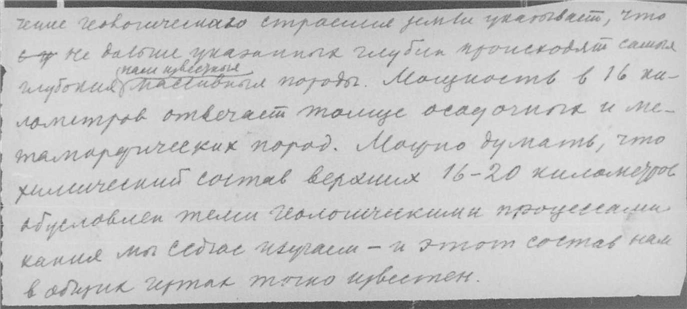 чение геологического строения земли указывает, что
не дальше указанных глубин происходят самыя
глубокия нам известныя массивныя породы. Мощность в 16 ки-
лометров отвечает толще осадочных и ме-
таморфических пород. Можно думать, что
химический состав верхних 16-20 километров
обусловлен теми геологическими процессами
какия мы сейчас изучаем – и этот состав нам
в общих чертах точно известен.